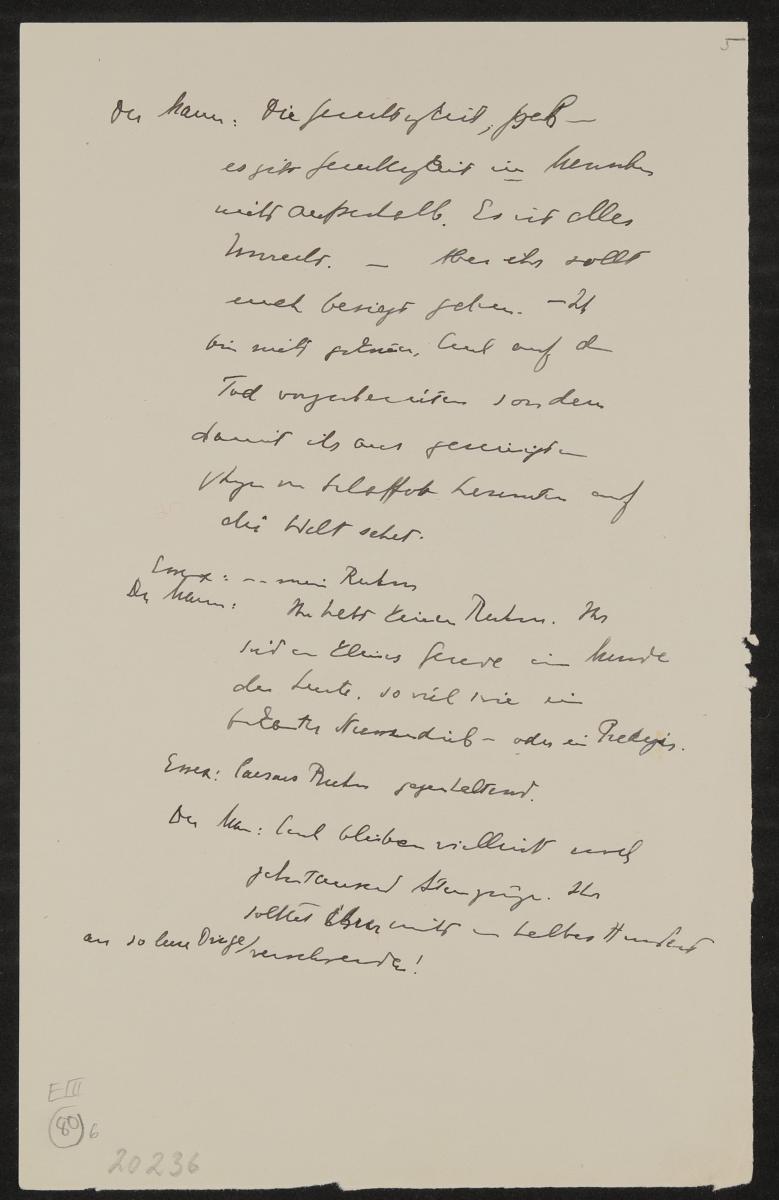 5
Der Mann: Die Gerechtigkeit,
es gibt Gerechtigkeit im Menschen
nicht außerhalb. Es ist alles
Unrecht. — Aber ihr sollt
euch besiegt geben. — Ich
bin nicht gekommen, Euch auf den
Tod vorzubereiten sondern
damit ihr aus gereinigten
Augen auf
die Welt sehet.
Essex: -- mein Ruhm
Der Mann: Ihr habt keinen Ruhm. Ihr
seid ein kleines Gerede im Munde
der Leute. so viel wie ein
bekannter — oder ein
Essex: Caesars Ruhm gegenhaltend.
Der Mann: Euch bleiben vielleicht noch
zehntausend Atemzüge. Ihr
solltet nicht ein halbes Hundert
an solche Dinge verschwenden!
E III
80 6
20236